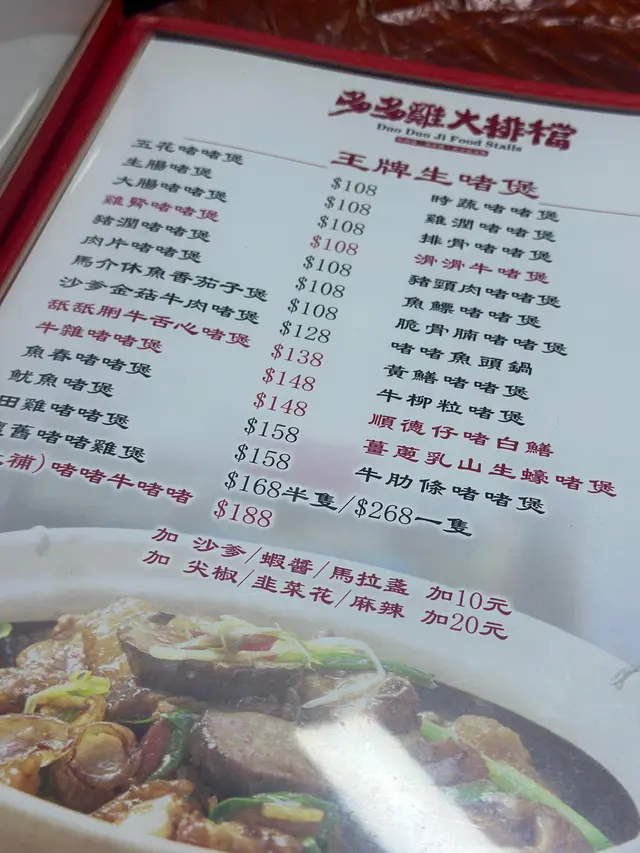 多多雞大排檔
Duo Duo Ji Food Stalls
王牌生啫煲
五花啫啫煲 $108 時蔬啫啫煲
生腸啫煲 $108 雞潤啫啫煲
大腸啫啫煲 $108 排骨啫啫煲
雞腎啫啫煲 $108 滑滑牛啫煲
豬潤啫啫煲 $108 豬頭肉啫啫煲
肉片啫啫煲 $108 魚鰾啫啫煲
馬介休魚香茄子煲 $108 脆骨腩啫啫煲
沙爹金菇牛肉啫煲 $128 啫啫魚頭鍋
舐舐脷牛舌心啫煲 $138 黃鱔啫啫煲
牛雜啫啫煲 $148 牛柳粒啫煲
魚春啫啫煲 $148 順德仔啫白鱔
魷魚啫煲 $158 薑蔥乳山生蠔啫煲
田雞啫啫煲 $158 牛肋條啫啫煲
舊啫啫雞煲 $168半隻/$268一隻
補)啫啫牛啫啫 $188
加 沙爹/蝦醬/馬拉盞 加10元
加 尖椒/韭菜花/麻辣 加20元